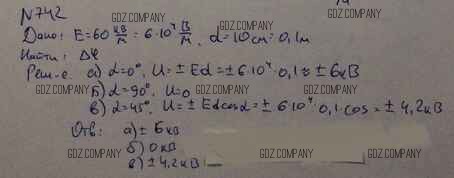 N742
GDZ.COMPANY GDZ.COMPANY GDZ.COMPANY
Дано: E=60 кВ/м = 6·10⁴ В/м, d=10см=0,1м
Найти: Δφ
Реш-е. а) α=0°, U=±Ed=±6·10⁴·0,1≈±6кВ
GDZ.COMPANY GDZ.COMPANY GDZ.COMPANY
б) α=90°, U=0
в) α=45°, U=±Edcosα=±6·10⁴·0,1·cos=±4,2кВ
Отв: а)±6кВ
б) 0кВ
GDZ.COMPANY GDZ.COMPANY GDZ.COMPANY
в) ±4,2кВ